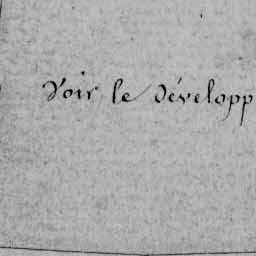 Voir le développ